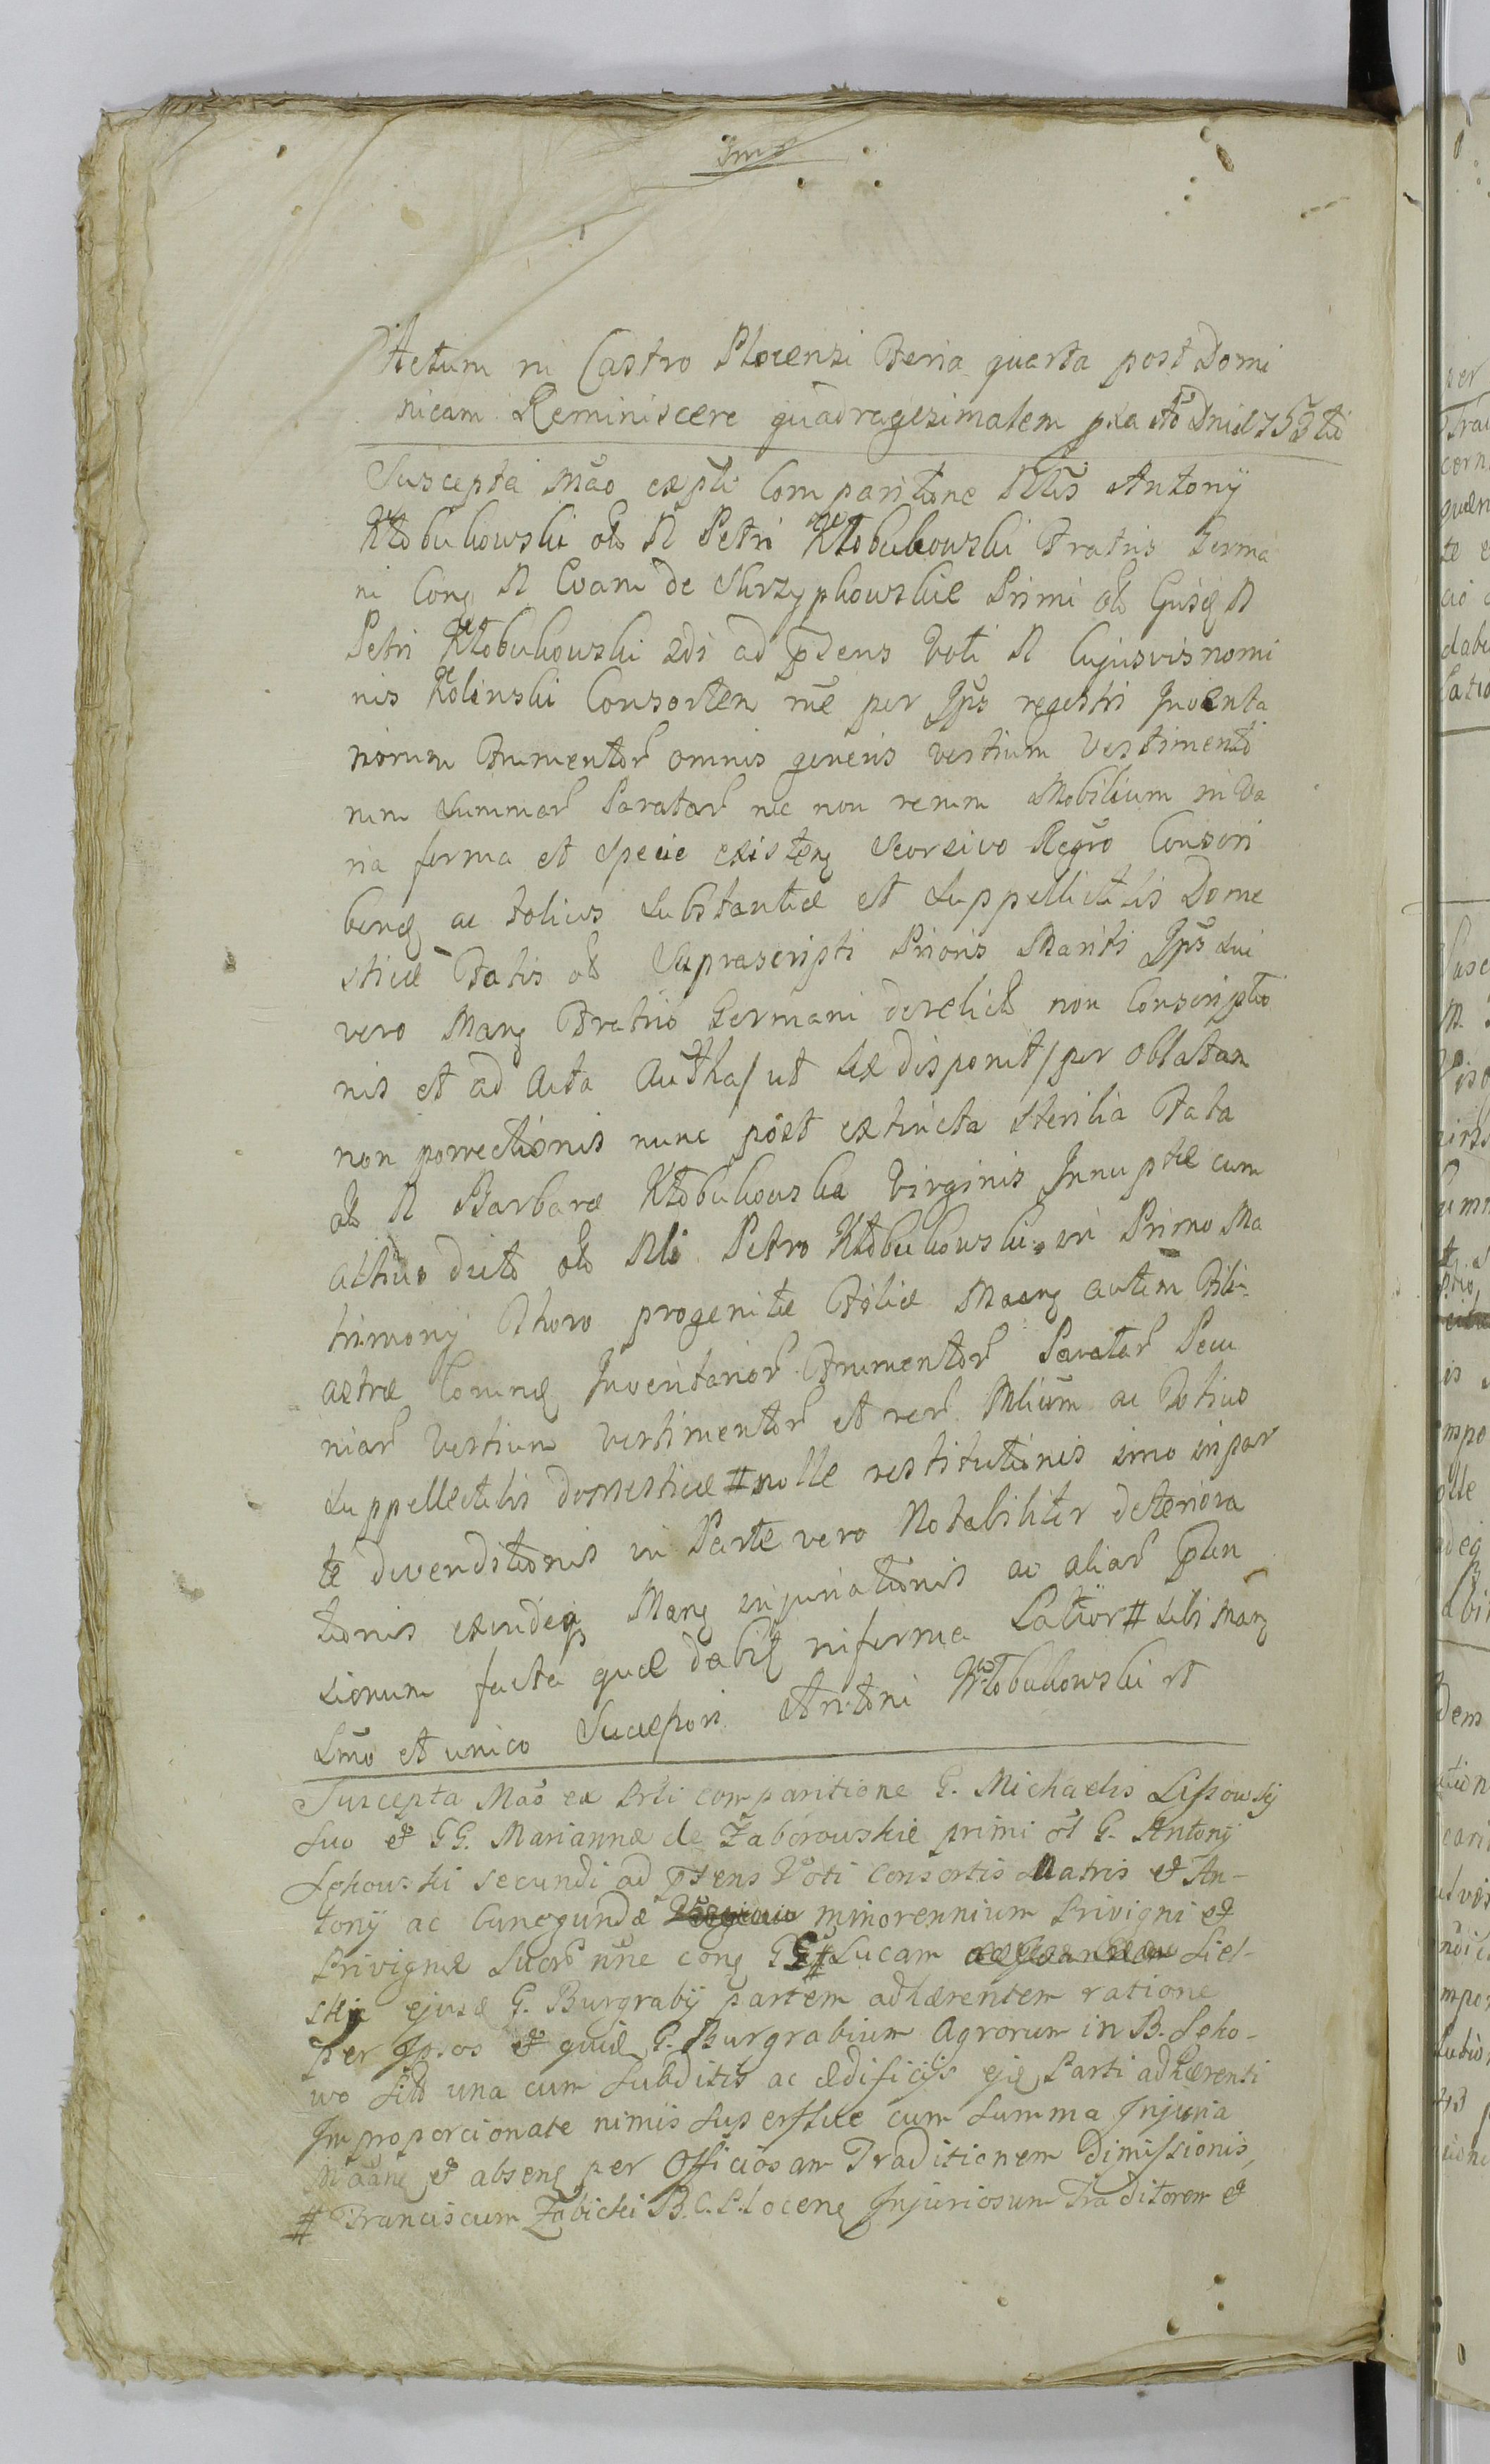 Actum in Castro Plocensi Feria quarta post Domi
nicam Reminiscere quadragesimalem pxa Ao Dni 1753tio
Suscepta Mao ex pti Comparitione Nlis Antonij
Kłobukowski ol N Petri Kłobukowski Fratris Germa
ni Conq N Evam de Skrzypkowskie Primi ol Ejusq N
Petri Kłobukowski 2di ad pdens Voti N Cujusvis nomi
nis Kolinski Consortem rne per Jps regestri Inventa
riorum Frumentor omnis generis vestium Vestimento
rum Summar Paratar nec non rerum Mobilium in Va
ria forma et specie existenq Seorsivo Regro Conscri
benq ac totius Substantiæ et Suppellectilis Dome
sticæ Fatis ol Suprascripti Prioris Mariti Jps sui
vero Manq Fratris Germani derelict non Conscriptio
nis et ad Acta Autha / ut lex disponit / per oblatam
non porrectionis nunc post extincta sterilia Fata
ol N Barbaræ Kłobukowska Virginis Innuptæ cum
altius dicto ol Nli Petro Kłobukowski in Primo Ma
trimonij Thoro progenitæ Filiæ Maanq autem Fili
astræ Inventarior Frumentor Paratar Pecu
niar Vestium vestimentor et rer Mlium ac Totius
Suppellectilis domesticæ # nolle restitutionis imo in par
te divenditionis in Parte vero Notabiliter deteriora
tionis exindeq Manq injuriationis ac aliar pten
sionum facta quæ dabiq in forma Latior # sibi Manq
Smo et unico Succepori Antoni Kłobukowski rt
Suscepta Mao ex Prti comparitione G. Michaelis Lissowskij
Suo et GG. Mariannæ de Zaborowskie primi ol G. Antonij
Lekowski secundi ad ptens Voti Consortis Matris et An-
tonij ac Cunegundæ minorennium Privigni et
Privignæ Suor nne conq GG # Lucam Siel-
ski ejusq G. Burgrabij partem adhærentem ratione
per Jpsos et quidq G. Burgrabium Agrorum in B. Leko-
wo Sitt una cum Subditis ac ædificijs ejq Parti adhærenti
Improporcionate nimis Superflue cum Summa Injuria
Maanq et absenq per Officiosam Traditionem Dimissionis,
# Franciscum Zabicki B.C. Plocenq Injuriosum Traditorem et